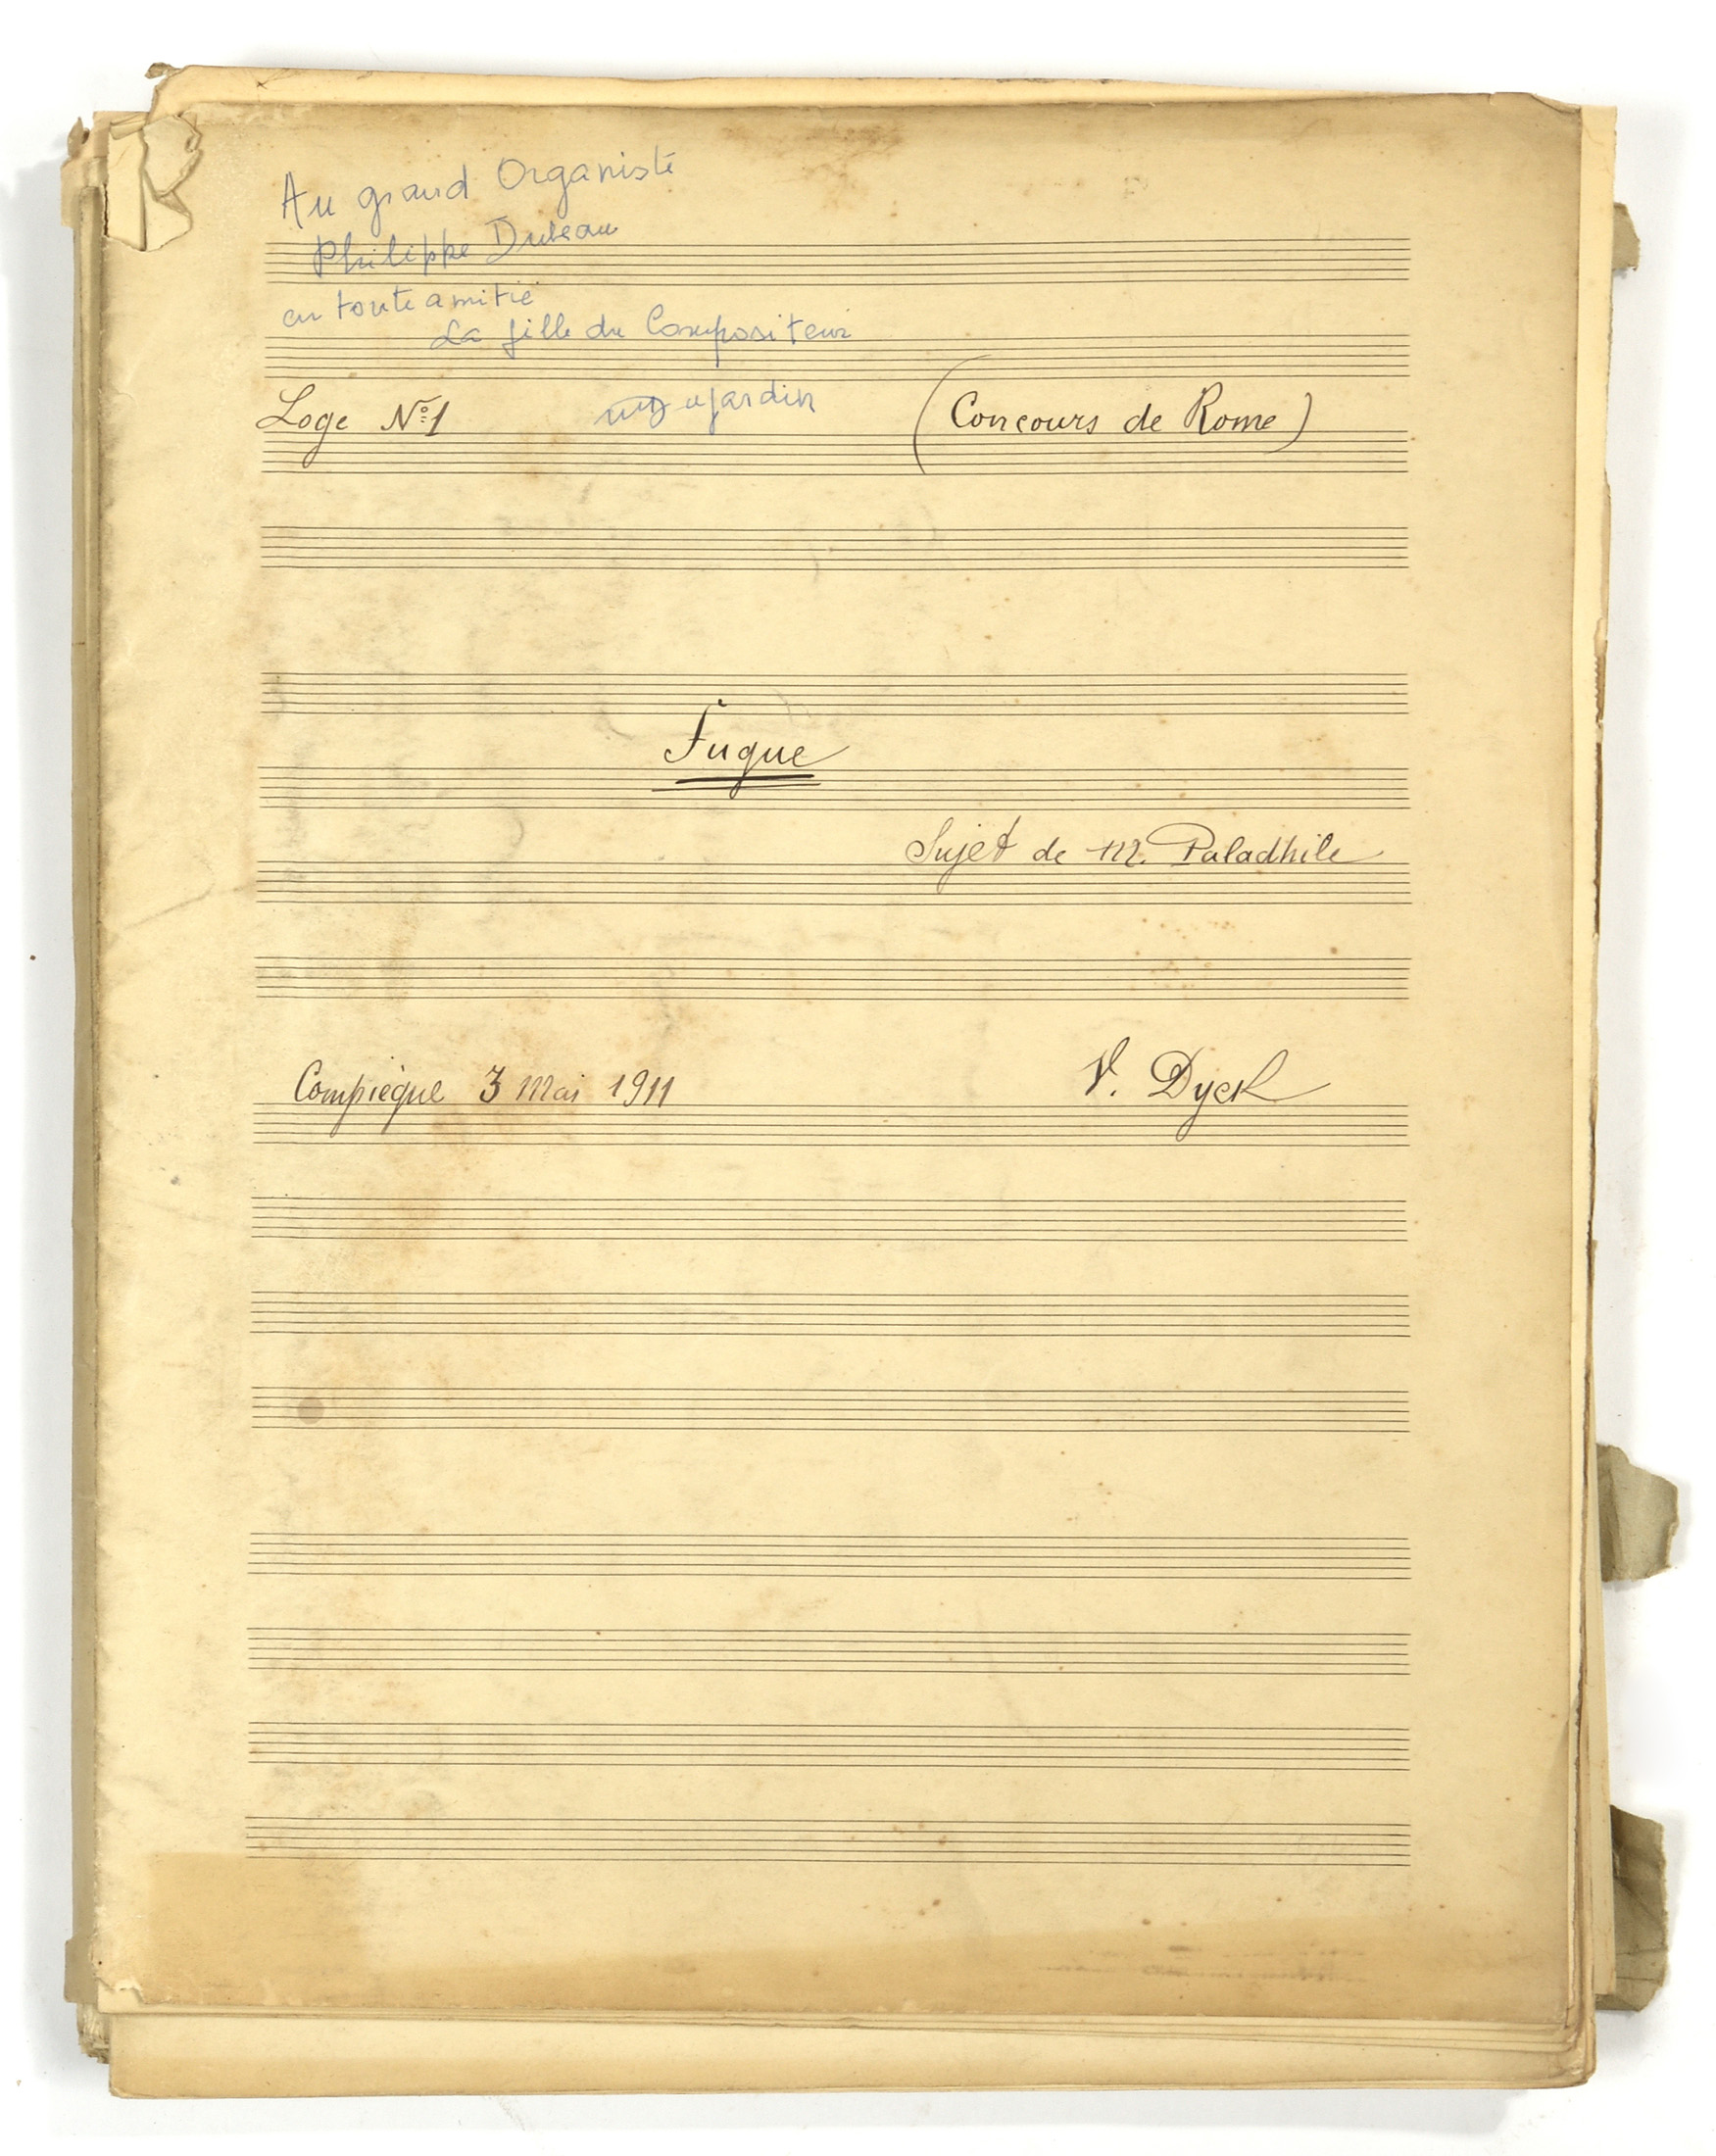 Au grand Organiste
Philippe Dubeau
en toute amitié
La fille du Compositeur
Loge Nº 1
(Concours de Rome)
Fugue
Sujet de M. Paladhile
Compiègne 3 Mai 1911
V. Dyck